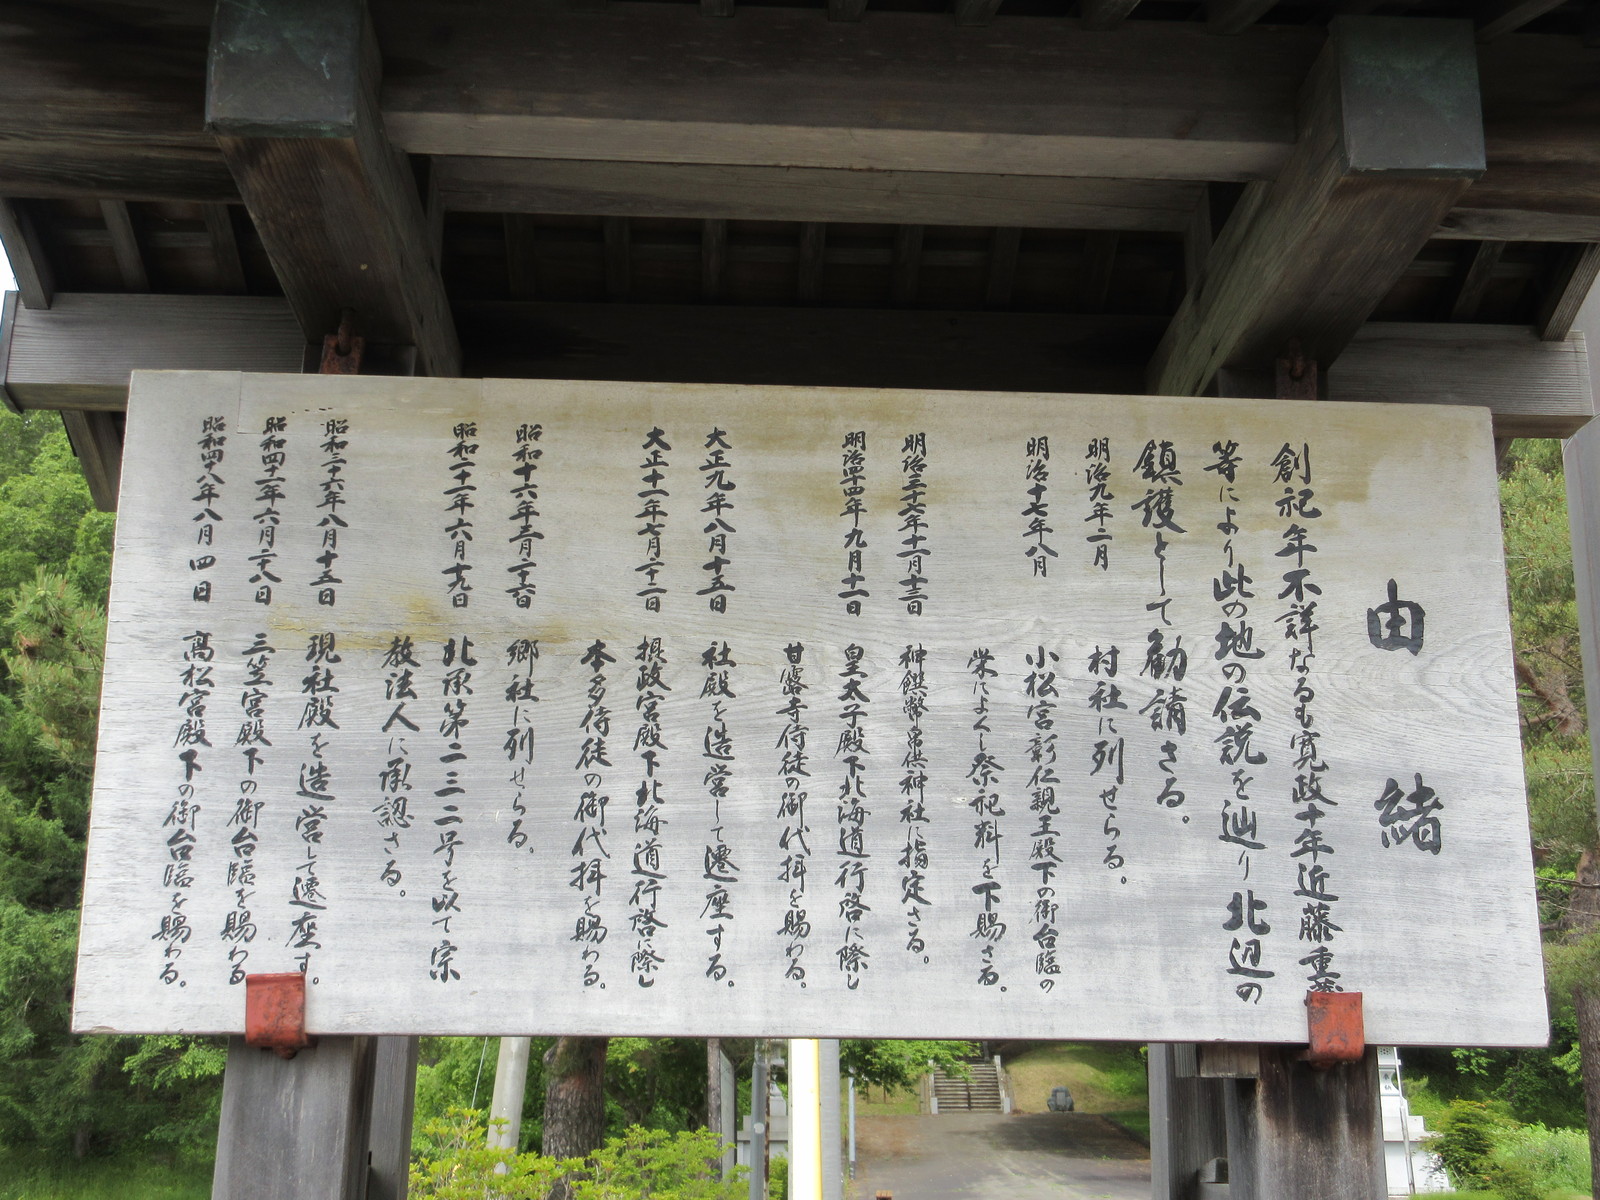 由緒
創祀年不詳なるも寛政十年近藤重蔵
等により此の地の伝説を辿り北辺の
鎮護として勧請さる。
明治九年二月 村社に列せらる。
明治十七年八月 小松宮彰仁親王殿下の御台臨の
栄によくし祭祀料を下賜さる。
明治三十七年十一月十三日 神饌幣帛供神社に指定さる。
明治四十四年九月十一日 皇太子殿下北海道行啓に際し
甘露寺侍徒の御代拝を賜わる。
大正九年八月十五日 社殿を造営して遷座する。
大正十一年七月二十二日 摂政宮殿下北海道行啓に際し
本多侍徒の御代拝を賜わる。
昭和十六年三月二十六日 郷社に列せらる。
昭和二十一年六月十九日 北承第二三二号を以て宗
教法人に承認さる。
昭和三十六年八月十五日 現社殿を造営して遷座す。
昭和四十一年六月二十八日 三笠宮殿下の御台臨を賜わる
昭和四十八年八月四日 高松宮殿下の御台臨を賜わる。